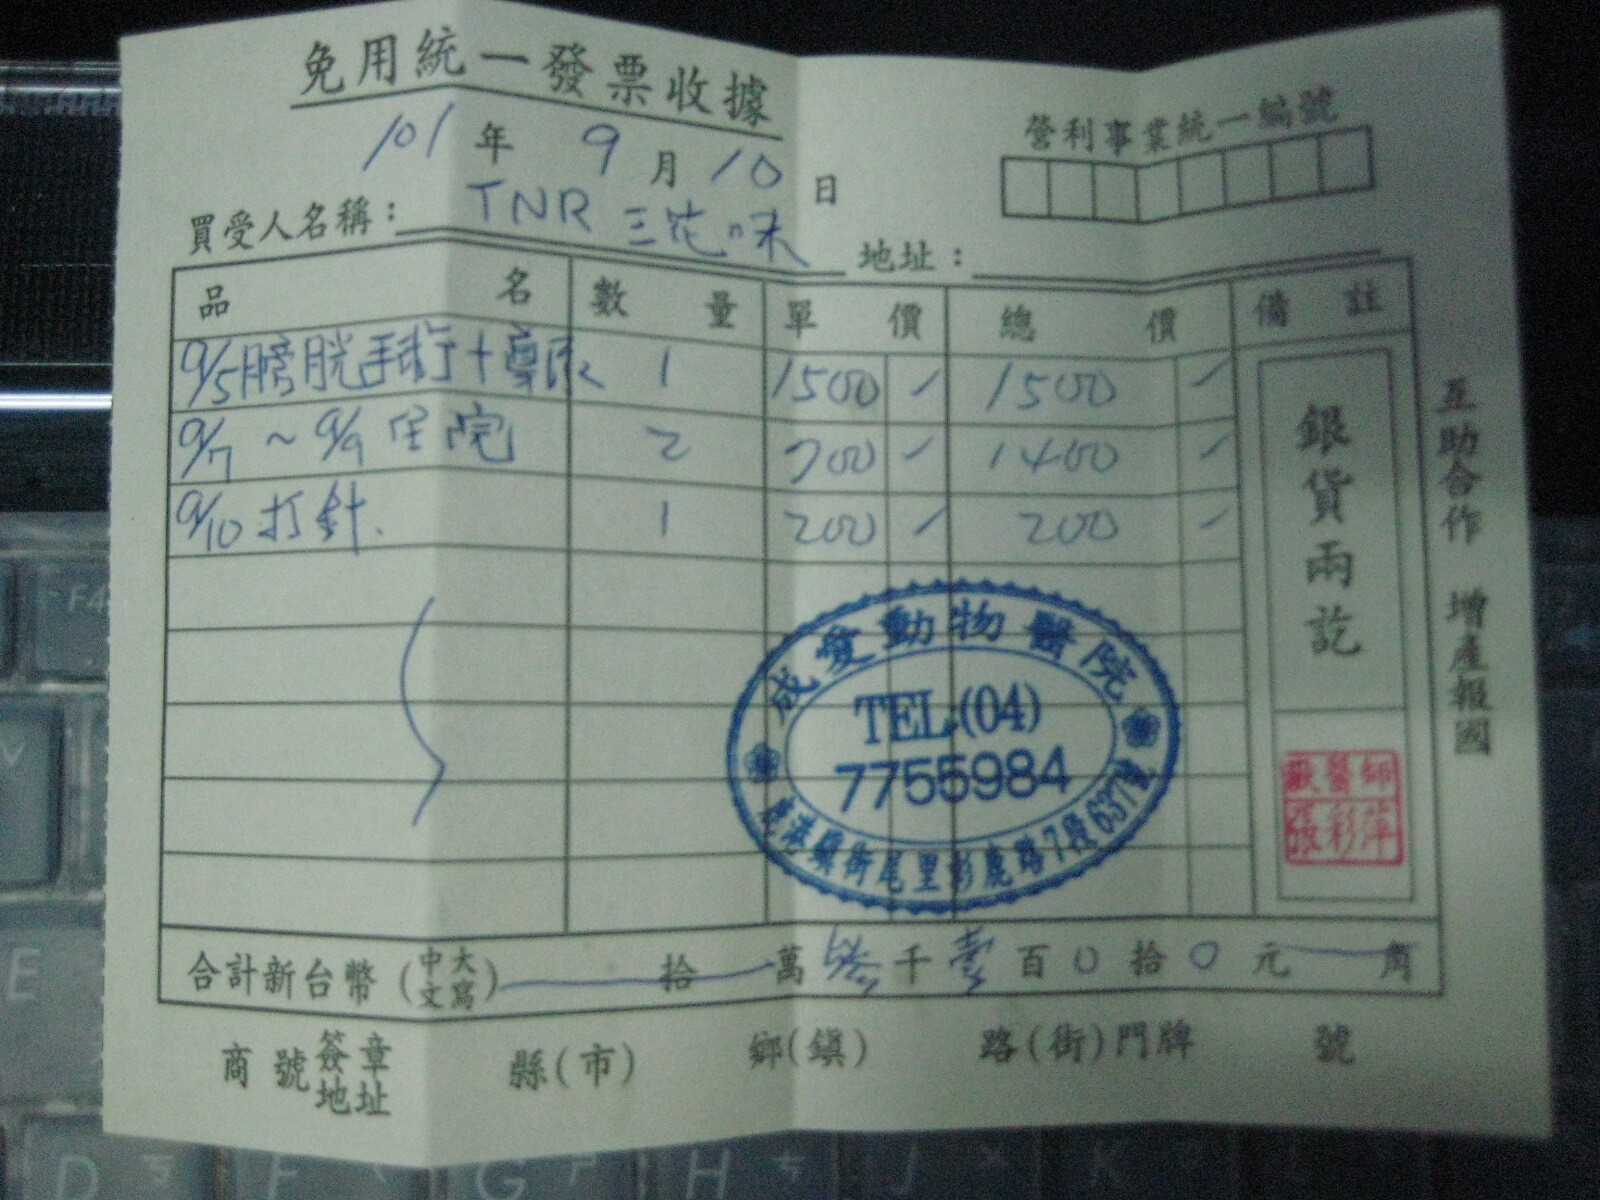 免用統一發票收據
101年9月10日
營利事業統一編號
買受人名稱：TNR 三花咪 地址：
品名 數量 單價 總價 備註
9/5膀胱手術+導尿 1 1500 1500
9/7~9/9住院 2 700 1400
9/10打針 1 200 200
銀貨兩訖
互助合作 增產報國
成愛動物醫院
TEL:(04)
7755984
鹿港鎮街尾里彰鹿路7段637號
獸醫師
張彩萍
合計新台幣(中文大寫) 拾 萬 叁千壹百0拾0元 角
商號簽章地址 縣(市) 鄉(鎮) 路(街)門牌 號
F4
E
D F G H J K L